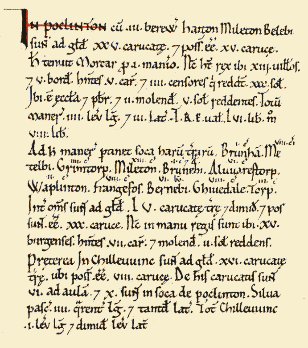 In POCLINTON cū .iii. berew Hatton Mileton Belebi
sunt ad gld̄ .XXV. carucatę. 7 possēt ēē .XV. carucę.
Hoc tenuit Morcar p̄ .i. manio. Nc̄ ht̄ rex ibi .XIII. uillos
7 V. bord. hn̄tes .V. car. 7 .IIII. censores q̇ reddt̄ .XXX. sol.
Ibi ē ęccła 7 pbr̄. 7 II. molend. V. sol reddentes. Totū
maner .IIII. lev lḡ. 7 III. lat. T.R.E. ual. LVI. lib. m̄
VIII. lib.
Ad h̄ maner panet soca harū t̄rarū. Brunha. Me
telbi. Grimtorp. Mileton. Brunebi. Aluuarestorp.
Waplinton. Frangefos. Bernebi. Ghiuedale. Torp.
Int om̄s sunt ad gld̄ .LV. carucatę t̄rę 7 dimid. 7 pos
sunt. ēē .XXX. carucę. Nc̄ in manu regis sunt ibi .XV.
burgenses. hn̄tes .VII. car. 7 molend. V. sol reddens.
Preterea In Chilleuuinc sunt ad gld̄ .XVI. carucatę
t̄rę. ubi poss̄ ēē .VIII. carucę. De his carucatis sunt
VI. ad aulā. 7 X. sunt in soca de poclinton. Silua
past̄ .IIII. q̄rent̄ lḡ. 7 tant̄d lat. Tot̄ Chilleuuinc
.i. lev lḡ 7 dimid lev lat